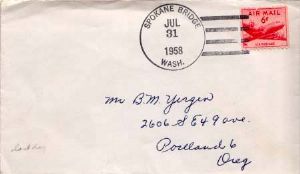 SPOKANE BRIDGE
JUL
31
1958
WASH.
AIR MAIL
6¢
U.S. POSTAGE
Mr B.M. Yergen
2606 SE 49 ave.
Portland 6
Oreg
last day